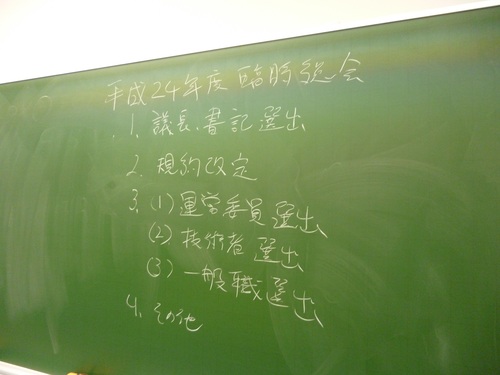 平成24年度臨時総会
1. 議長、書記選出
2. 規約改定
3. (1) 運営委員選出
(2) 技術者選出
(3) 一般職選出
4. その他